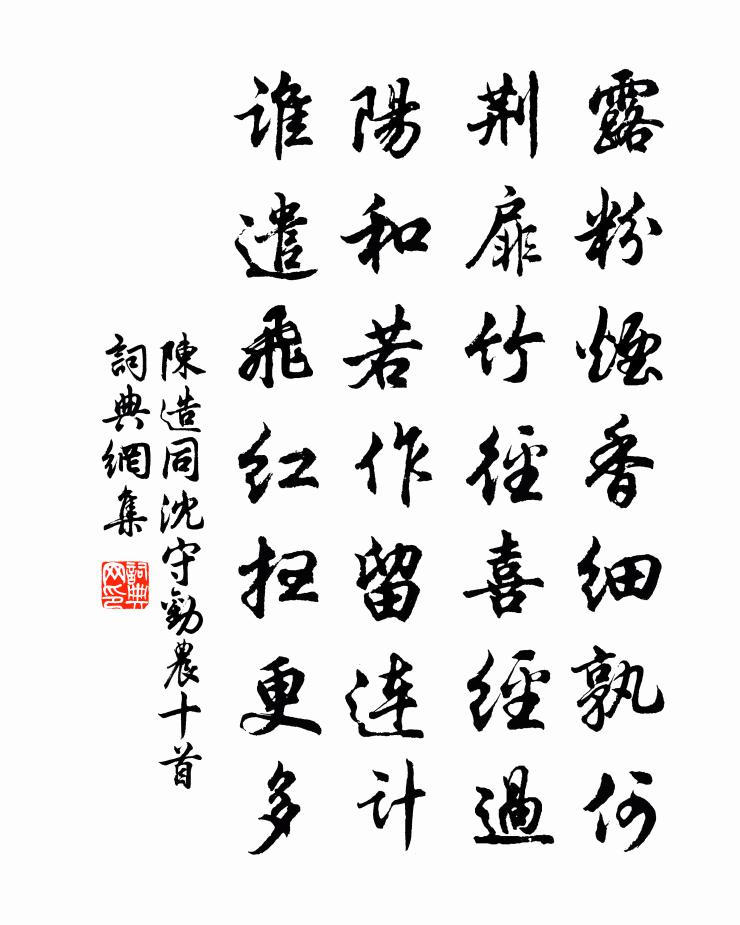 露粉煙香細孰何
荊扉竹徑喜經過
陽和若作留連計
誰遣飛紅抂更多
陳造同沈守勸農十首
詞典網集
詞典
网印